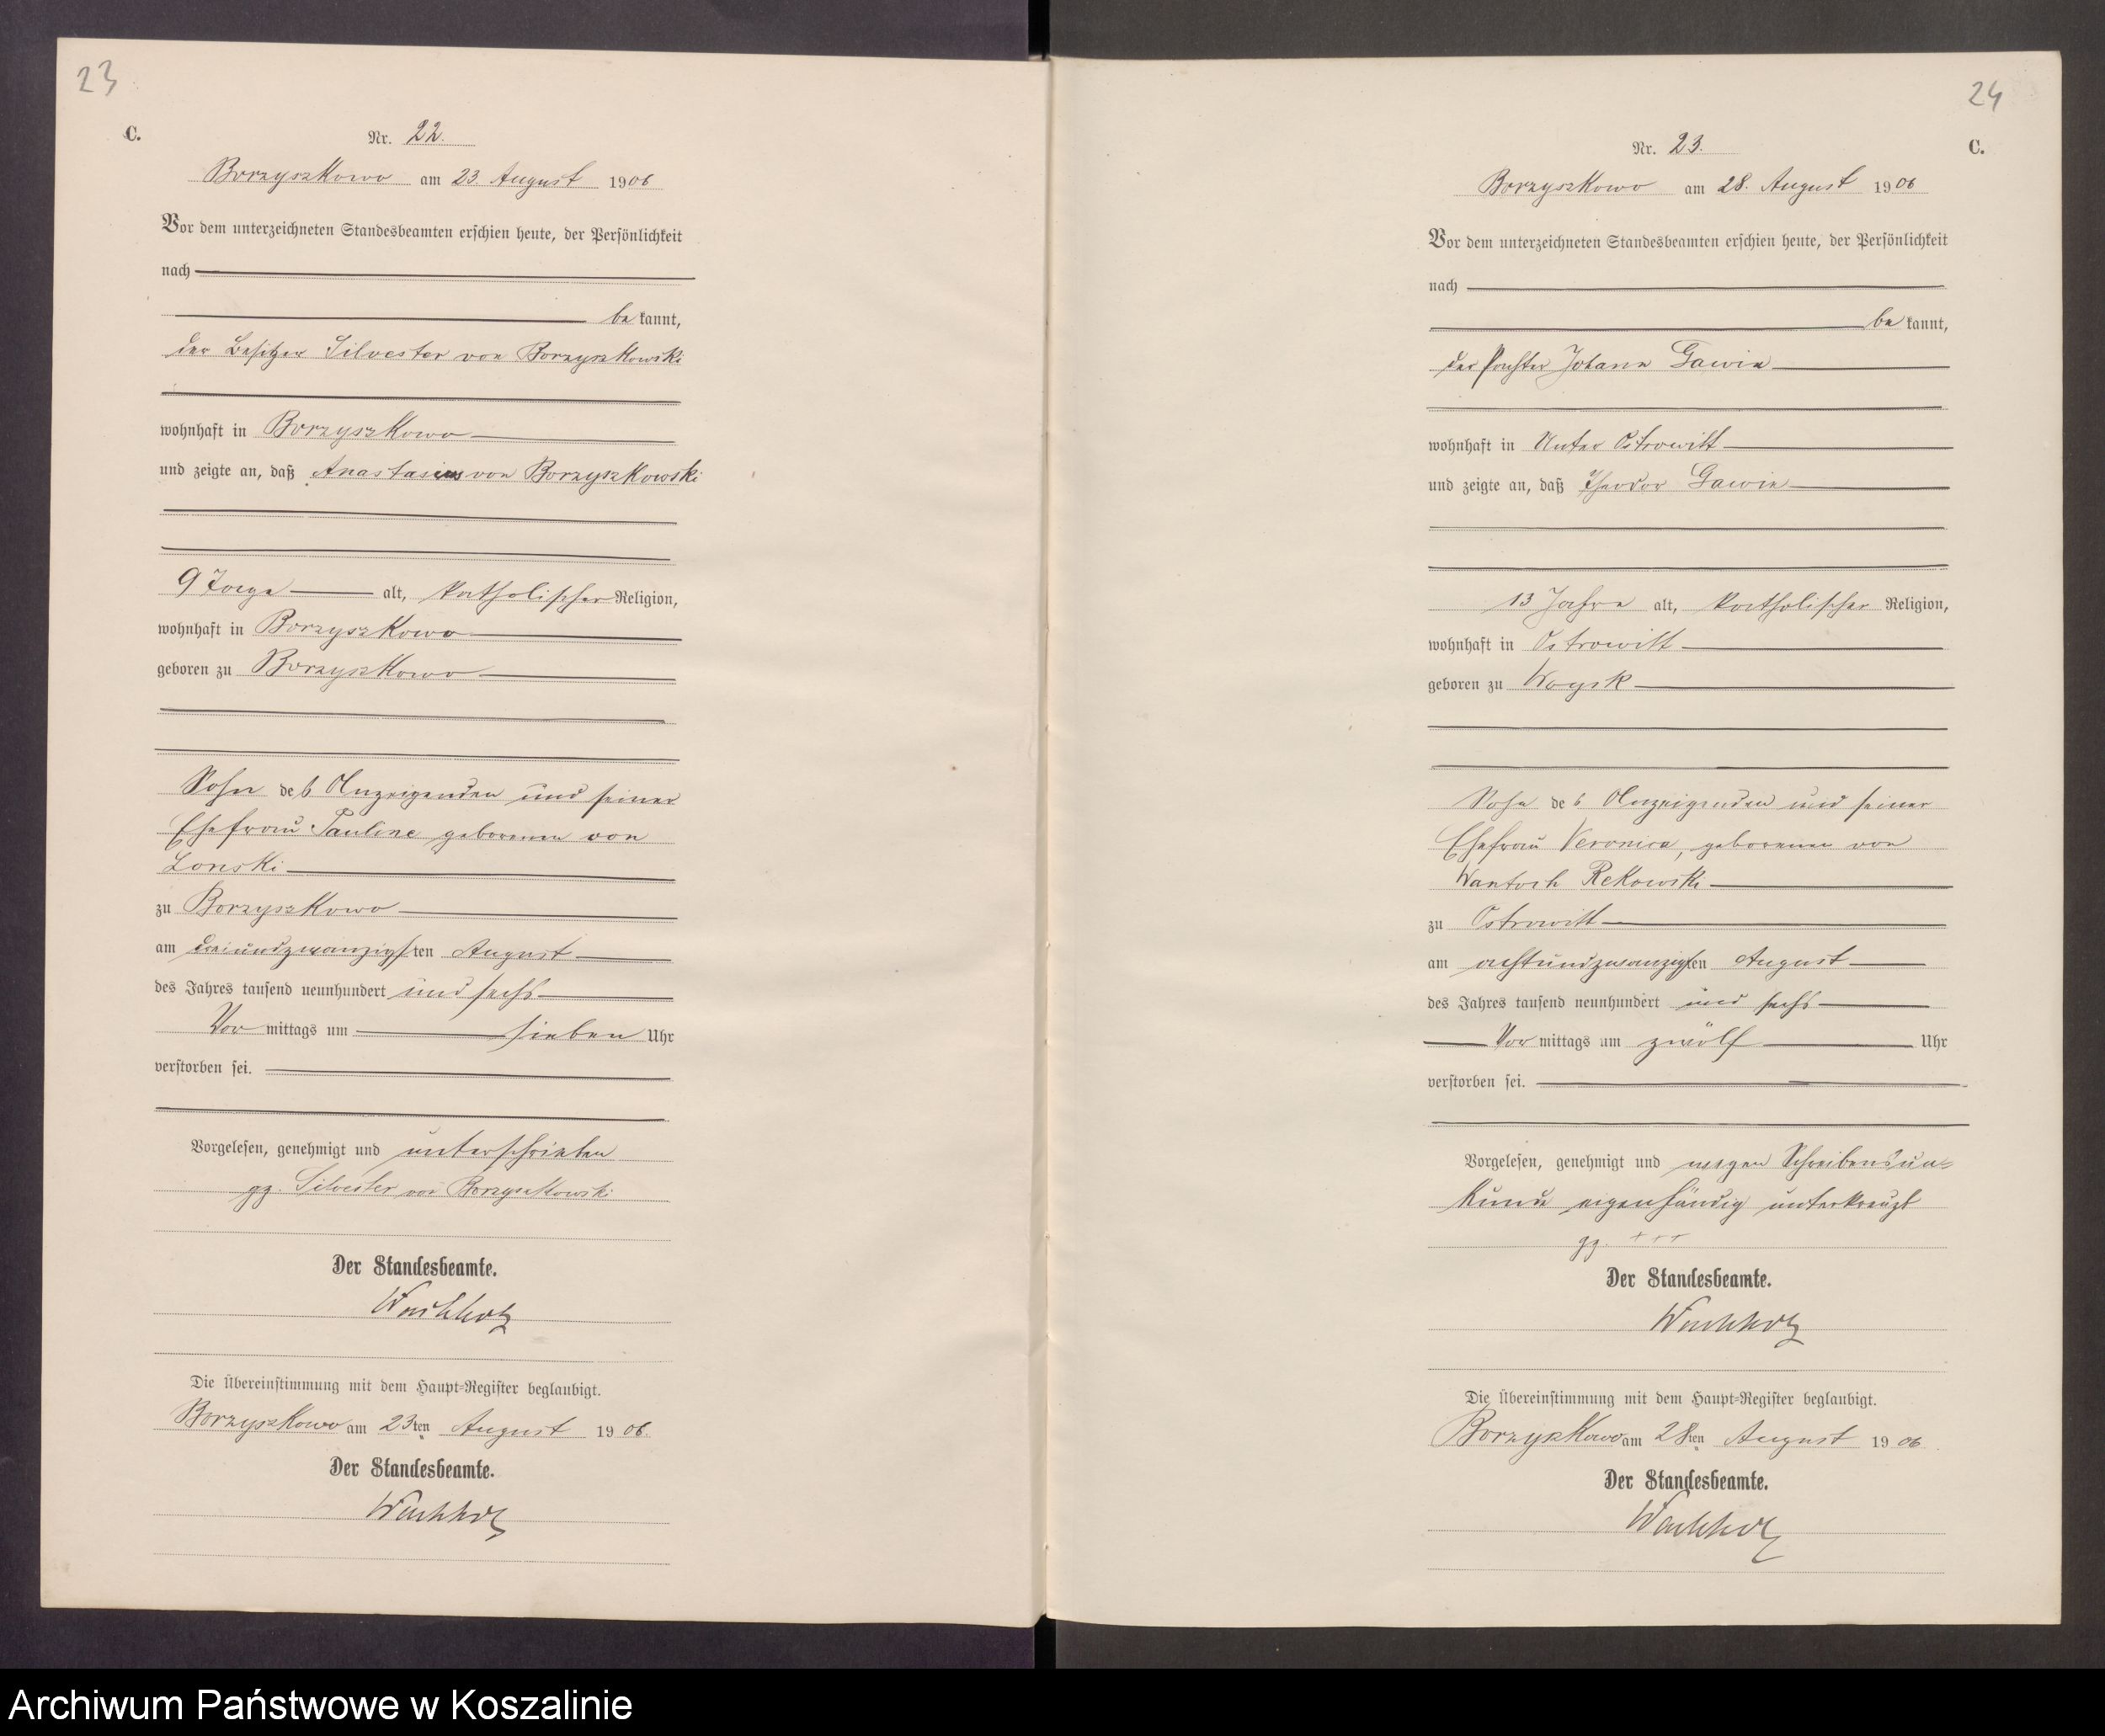 23
C.
Nr. 22.
Borzyszkowo am 23. August 1906
Vor dem unterzeichneten Standesbeamten erschien heute, der Persönlichkeit
nach
be kannt,
der Besitzer Silvester von Borzyszkowski
wohnhaft in Borzyszkowo
und zeigte an, daß Anastasius von Borzyszkowski
9 Tage alt, katholischer Religion,
wohnhaft in Borzyszkowo
geboren zu Borzyszkowo
Sohn des Anzeigenden und seiner
Ehefrau Pauline geborenen von
Lonski
zu Borzyszkowo
am dreiundzwanzigsten August
des Jahres tausend neunhundert und sechs
Vor mittags um sieben Uhr
verstorben sei.
Vorgelesen, genehmigt und unterschrieben
gz. Silvester von Borzyszkowski
Der Standesbeamte.
Wachholz
Die Übereinstimmung mit dem Haupt-Register beglaubigt.
Borzyszkowo am 23ten August 1906.
Der Standesbeamte.
Wachholz
24
C.
Nr. 23.
Borzyszkowo am 28. August 1906
Vor dem unterzeichneten Standesbeamten erschien heute, der Persönlichkeit
nach
be kannt,
der Pächter Johann Gawin
wohnhaft in Unter Ostrowitt
und zeigte an, daß Theodor Gawin
13 Jahre alt, katholischer Religion,
wohnhaft in Ostrowitt
geboren zu Woysk
Sohn des Anzeigenden und seiner
Ehefrau Veronica, geborenen von
Wantoch Rekowski
zu Ostrowitt
am achtundzwanzigsten August
des Jahres tausend neunhundert und sechs
Vor mittags um zwölf Uhr
verstorben sei.
Vorgelesen, genehmigt und wegen Schreibensun-
kunde eigenhändig unterkreuzt
gz. +++
Der Standesbeamte.
Wachholz
Die Übereinstimmung mit dem Haupt-Register beglaubigt.
Borzyszkowo am 28ten August 1906
Der Standesbeamte.
Wachholz
Archiwum Państwowe w Koszalinie